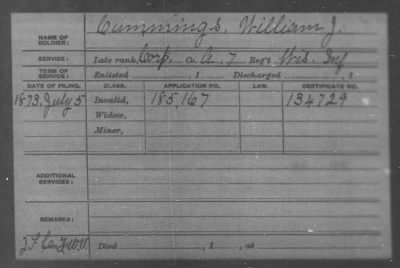 NAME OF SOLDIER: Cummings, William J.
SERVICE: Late rank, Corp. Co. A, 7 Reg't Wis. Inf
TERM OF SERVICE: Enlisted , 1 Discharged , 1
DATE OF FILING. CLASS. APPLICATION NO. LAW. CERTIFICATE NO.
1873, July 5 Invalid, 185,167 134729
Widow,
Minor,
ADDITIONAL SERVICES:
REMARKS:
Died , 1 , at